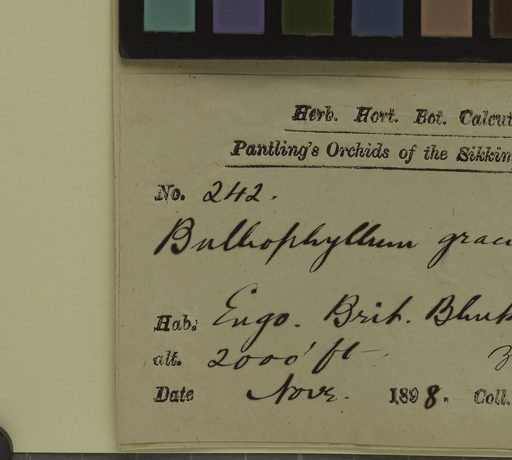 Herb. Hort. Bot. Calcut
Pantling's Orchids of the Sikkim
No. 242.
Bulbophyllum grac
Hab: Engo. Brit. Bhut
alt. 2000' ft
Date Novr. 1898. Coll.